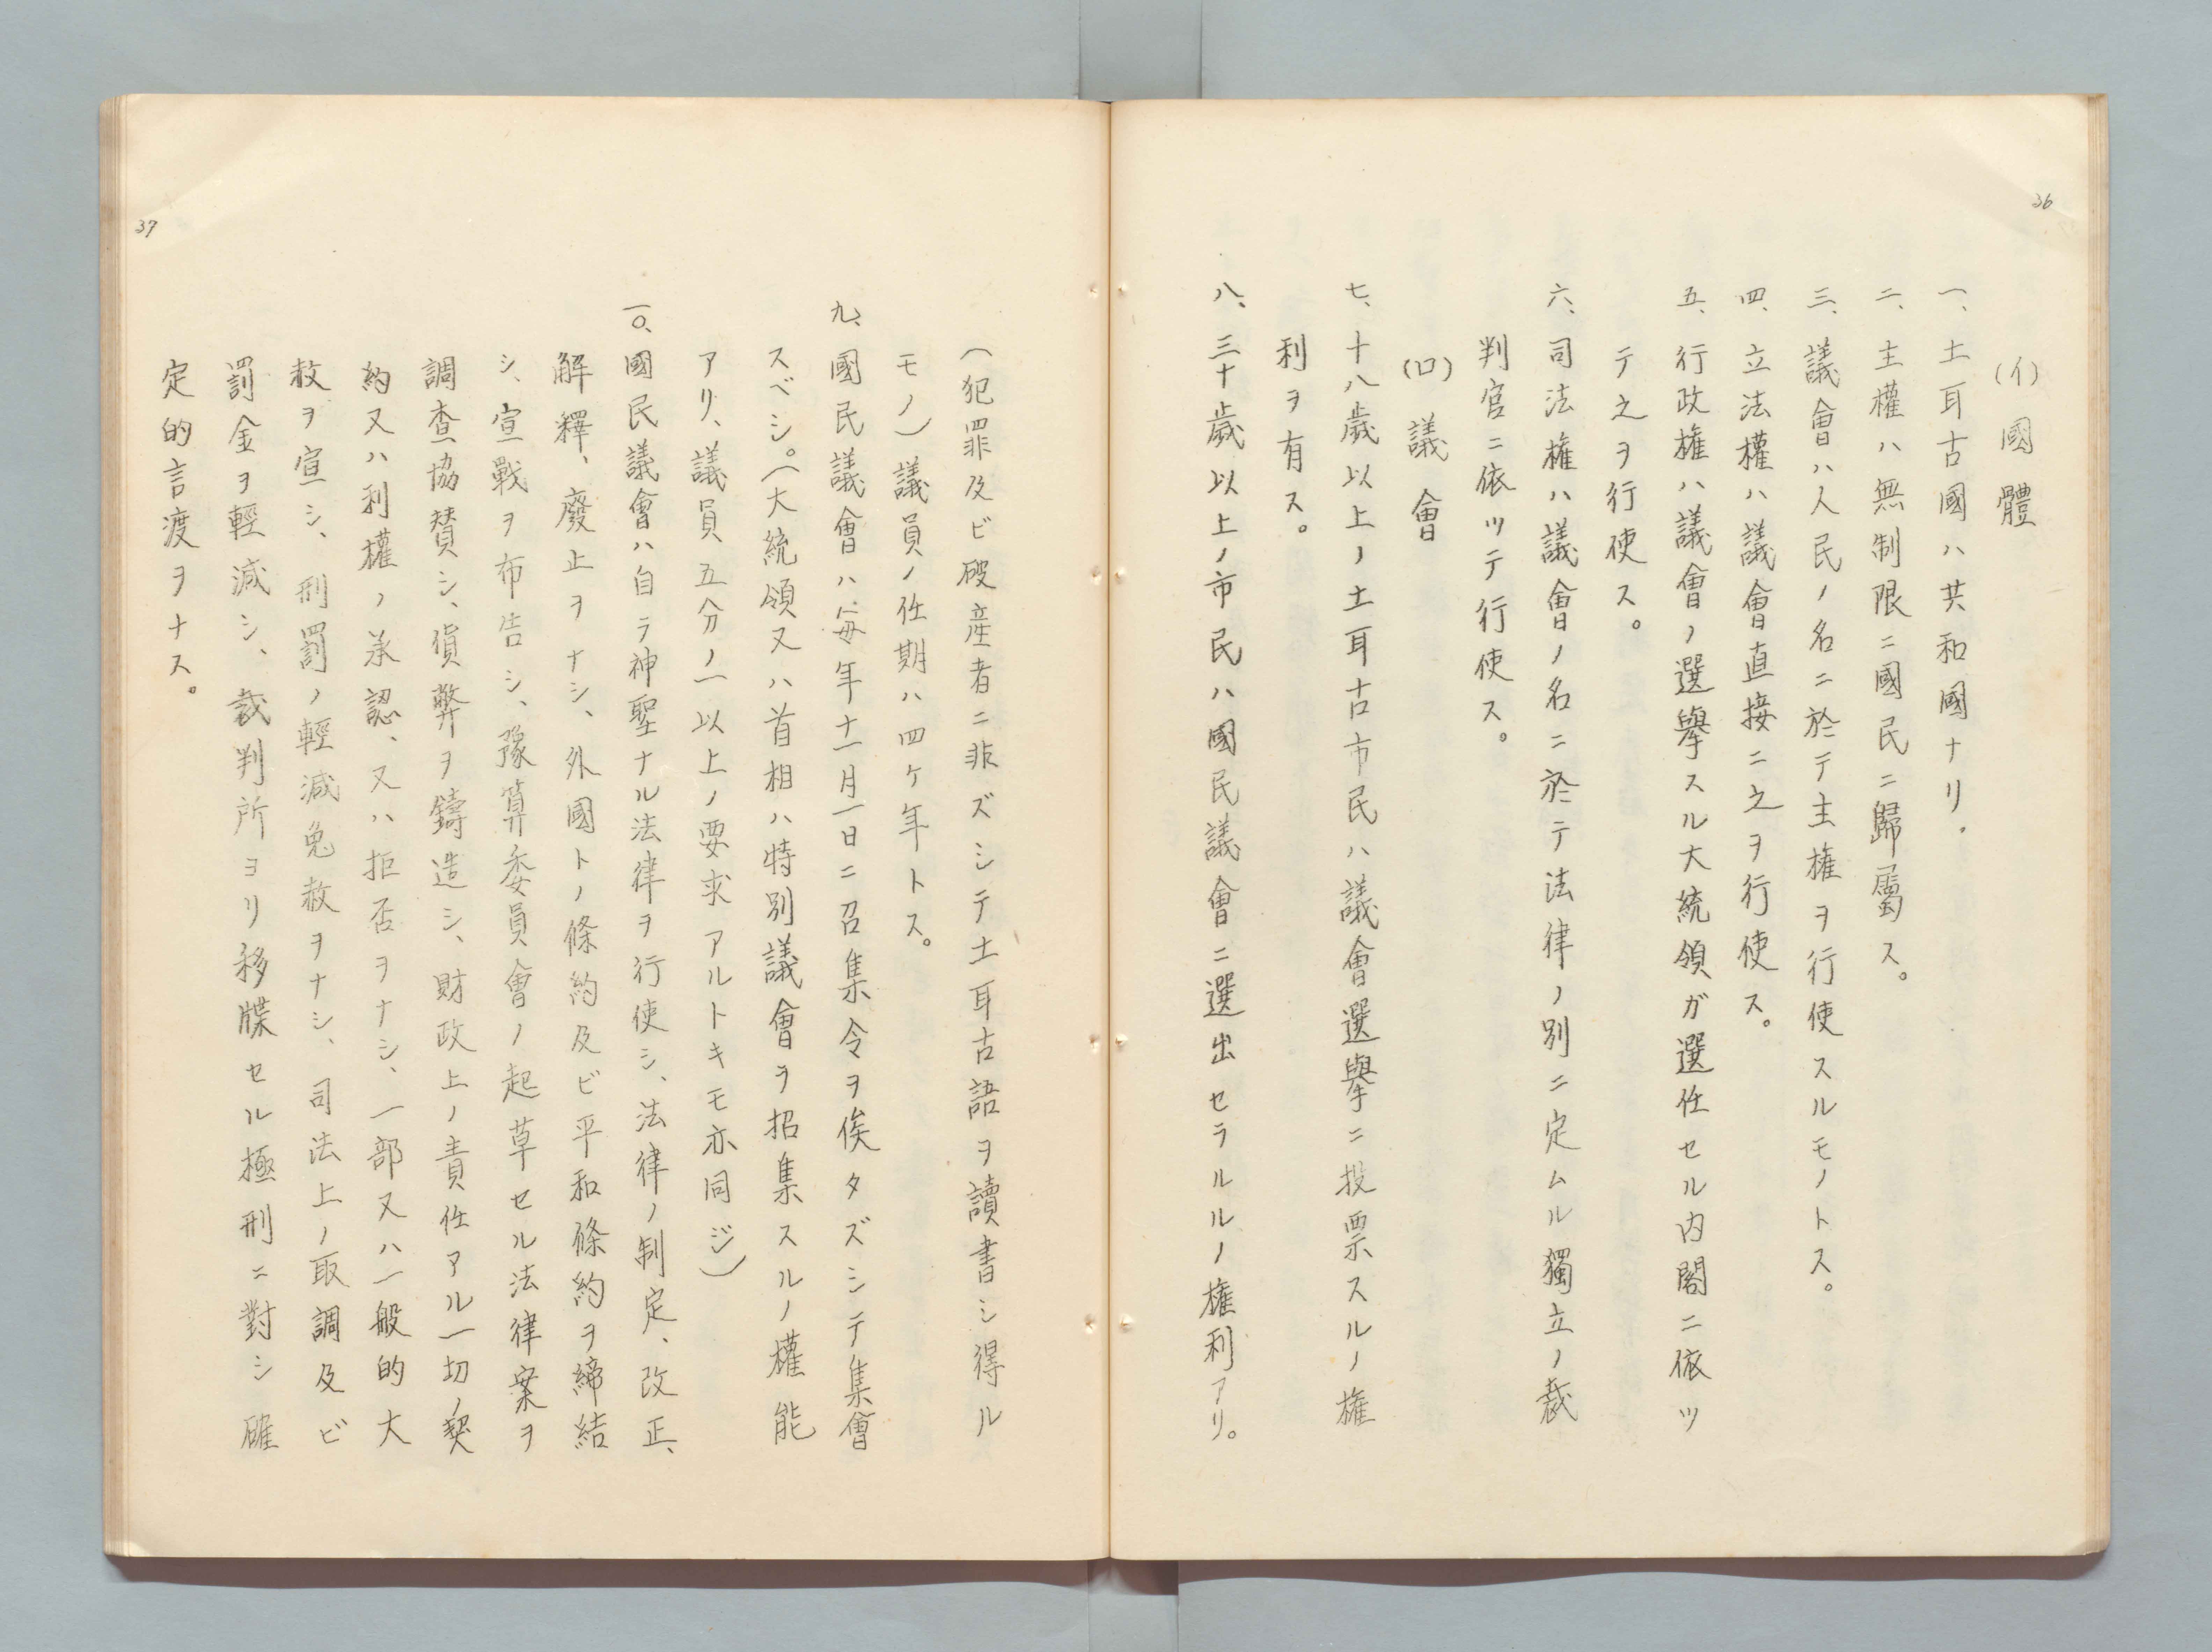 36
(イ) 國體
一、土耳古國ハ共和國ナリ。
二、主權ハ無制限ニ國民ニ歸屬ス。
三、議會ハ人民ノ名ニ於テ主権ヲ行使スルモノトス。
四、立法權ハ議會直接ニ之ヲ行使ス。
五、行政権ハ議會ノ選擧スル大統領ガ選任セル内閣ニ依ツ
テ之ヲ行使ス。
六、司法権ハ議會ノ名ニ於テ法律ノ別ニ定ムル獨立ノ裁
判官ニ依ツテ行使ス。
(ロ) 議會
七、十八歳以上ノ土耳古市民ハ議會選擧ニ投票スルノ権
利ヲ有ス。
八、三十歳以上ノ市民ハ國民議會ニ選出セラルルノ権利アリ。
(犯罪及ビ破産者ニ非ズシテ土耳古語ヲ讀書シ得ル
モノ)議員ノ任期ハ四ケ年トス。
九、國民議會ハ毎年十一月一日ニ召集令ヲ俟タズシテ集會
スベシ。(大統領又ハ首相ハ特別議會ヲ招集スルノ權能
アリ、議員五分ノ一以上ノ要求アルトキモ亦同ジ)
一〇、國民議會ハ自ラ神聖ナル法律ヲ行使シ、法律ノ制定、改正、
解釋、廢止ヲナシ、外國トノ條約及ビ平和條約ヲ締結
シ、宣戰ヲ布告シ、豫算委員會ノ起草セル法律案ヲ
調査協賛シ、貨幣ヲ鑄造シ、財政上ノ責任アル一切ノ契
約又ハ利權ノ承認、又ハ拒否ヲナシ、一部又ハ一般的大
赦ヲ宣シ、刑罰ノ輕減免赦ヲナシ、司法上ノ取調及ビ
罰金ヲ輕減シ、裁判所ヨリ移牒セル極刑ニ對シ確
定的言渡ヲナス。
37